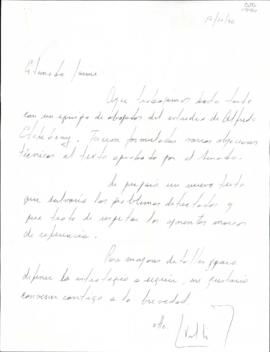 19/11/90
Estimado Jaime
Ayer trabajamos hasta tarde
con un equipo de abogados del estudio de Alfredo
Etcheberry. Fueron formuladas varias objeciones
técnicas al texto aprobado por el Senado.
Se preparó un nuevo texto
que salvaría los problemas detectados y
que trata de respetar los
de referencia.
Para mayores detalles y para
definir la estrategia a seguir, me gustaría
conversar contigo a la brevedad.
Atte.